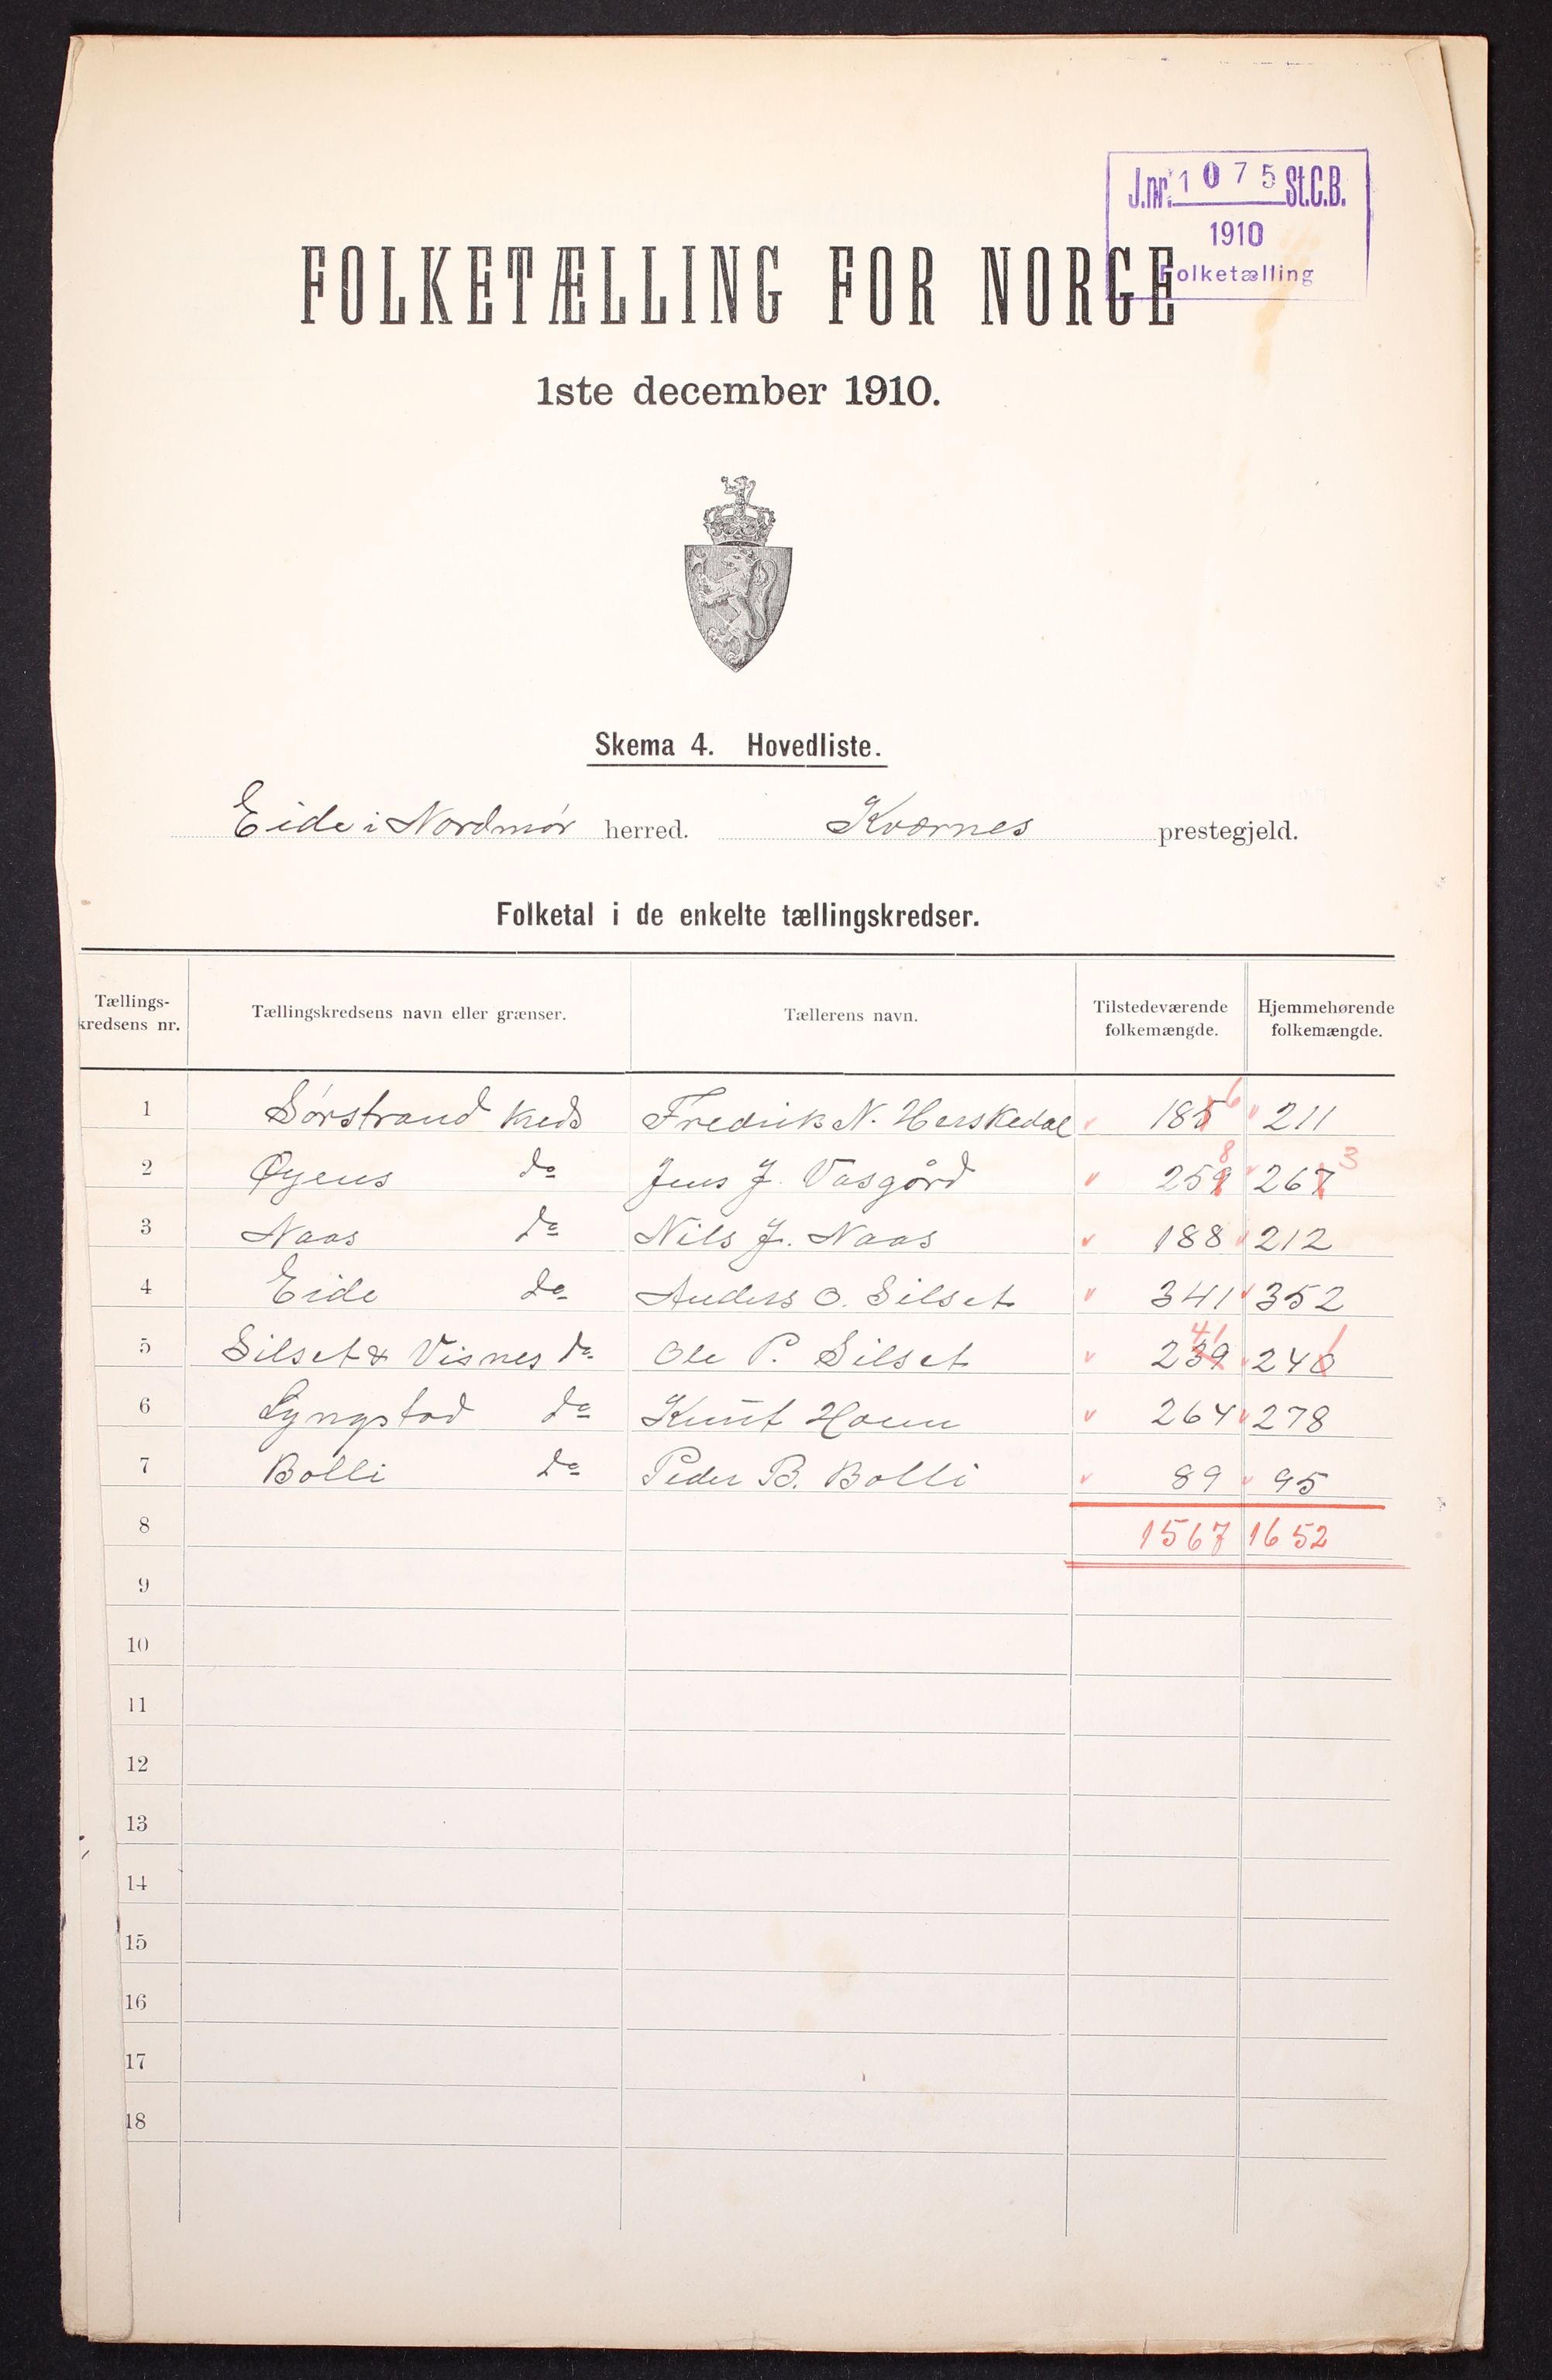 J.nr. 1075 St.C.B.
1910
Folketælling
FOLKETÆLLING FOR NORGE
1ste december 1910.
Skema 4. Hovedliste.
Eide i Nordmør herred. Kværnes prestegjeld.
Folketal i de enkelte tællingskredser.
Tællings-kredsens nr. Tællingskredsens navn eller grænser. Tællerens navn. Tilstedeværende folkemængde. Hjemmehørende folkemængde.
1 Sørstrand Kreds Fredrik N. Herskedal 185 6 211
2 Øyens do Jens J. Vasgård 259 8 267 3
3 Naas do Nils J. Naas 188 212
4 Eide do Anders O. Silset 341 352
5 Silset & Visnes do Ole P. Silset 239 41 240 1
6 Lyngstad do Knut 264 278
7 Bolli do Peder B. Bolli 89 95
8 1567 1652
9
10
11
12
13
14
15
16
17
18